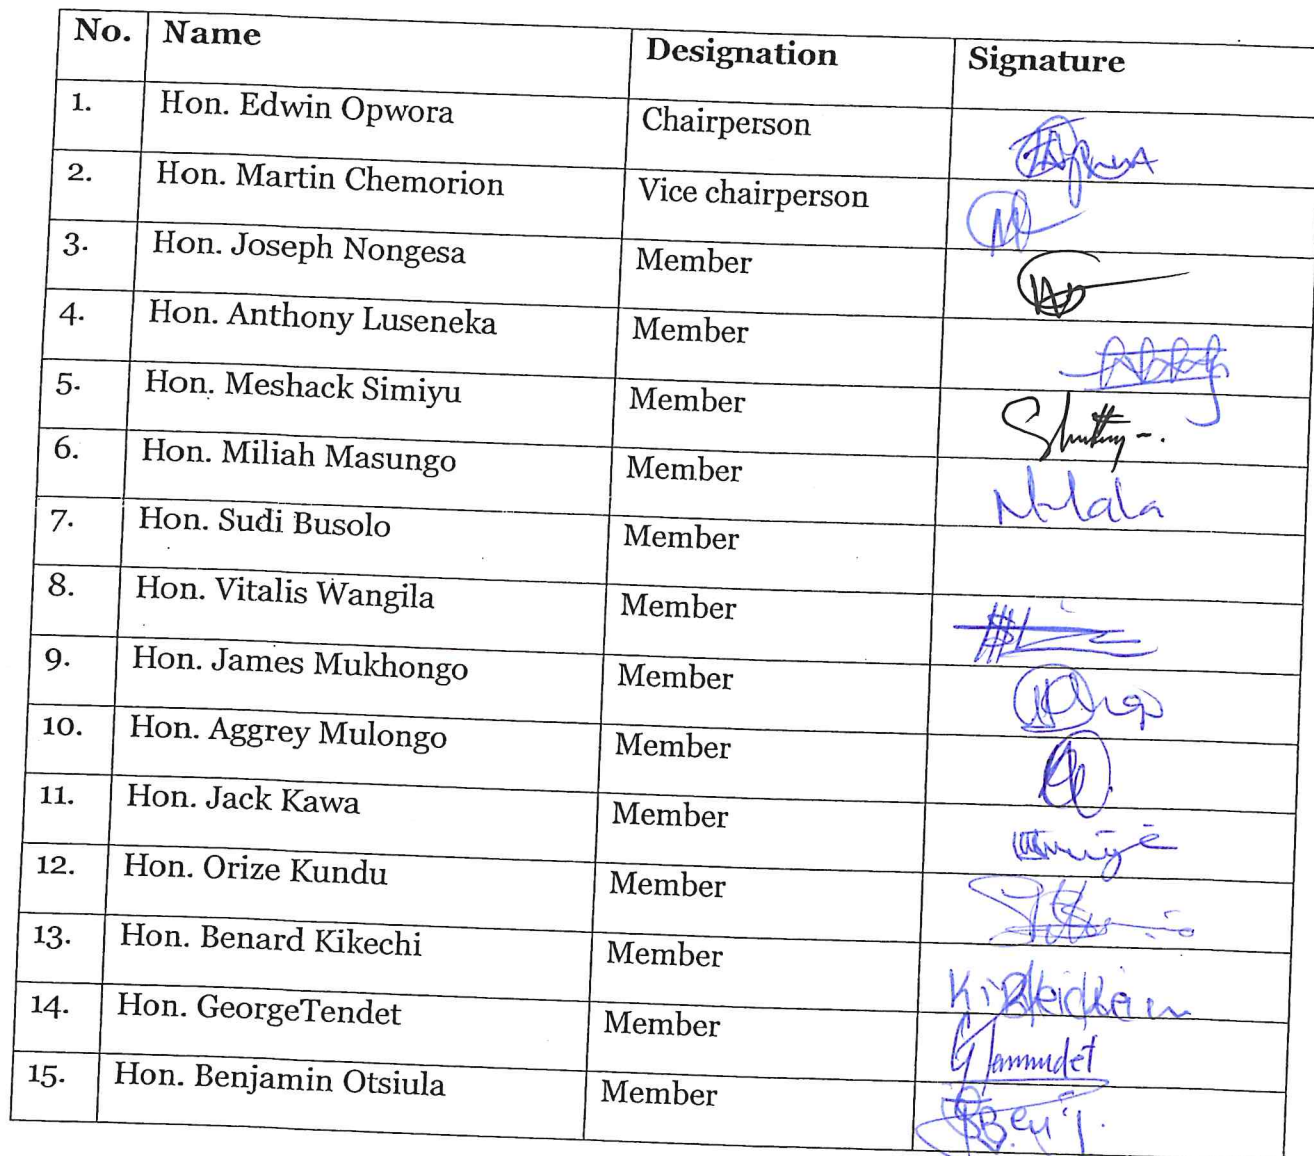 No. Name Designation Signature
1. Hon. Edwin Opwora Chairperson
2. Hon. Martin Chemorion Vice chairperson
3. Hon. Joseph Nongesa Member
4. Hon. Anthony Luseneka Member
5. Hon. Meshack Simiyu Member
6. Hon. Miliah Masungo Member
7. Hon. Sudi Busolo Member
8. Hon. Vitalis Wangila Member
9. Hon. James Mukhongo Member
10. Hon. Aggrey Mulongo Member
11. Hon. Jack Kawa Member
12. Hon. Orize Kundu Member
13. Hon. Benard Kikechi Member
14. Hon. GeorgeTendet Member
15. Hon. Benjamin Otsiula Member